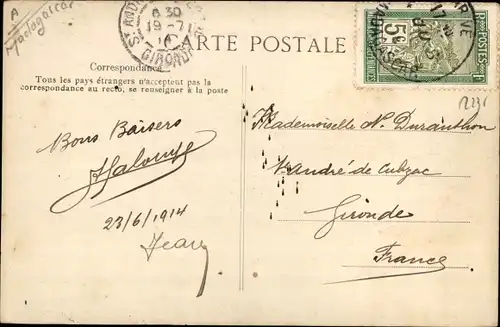 A
Madagascar
CARTE POSTALE
Correspondance
Tous les pays étrangers n'acceptent pas la
correspondance au recto, se renseigner à la poste
8 30
19 -7
14
GIRONDE
POSTES
5
Bons Baisers
23/6/1914
Jean
Mademoiselle N. Duranthon
St André de Cubzac
Gironde
France